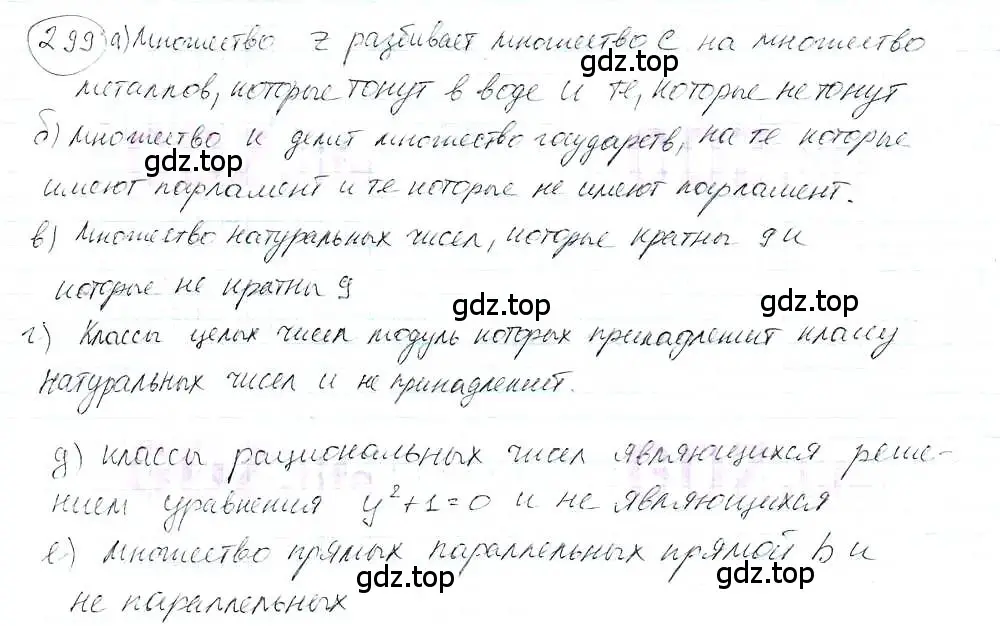 299 а) Множество Z разбивает множество C на множество
gdz.top
металлов, которые тонут в воде и те, которые не тонут
б) Множество K делит множество государств, на те которые
gdz.top gdz.top
имеют парламент и те которые не имеют парламент.
в) Множество натуральных чисел, которые кратны 9 и
которые не кратны 9
gdz.top
г) Классы целых чисел модуль которых принадлежит классу
натуральных чисел и не принадлежит.
д) классы рациональных чисел являющихся реше-
нием уравнения y²+1=0 и не являющихся
е) Множество прямых параллельных прямой b и
gdz.top gdz.top
не параллельных